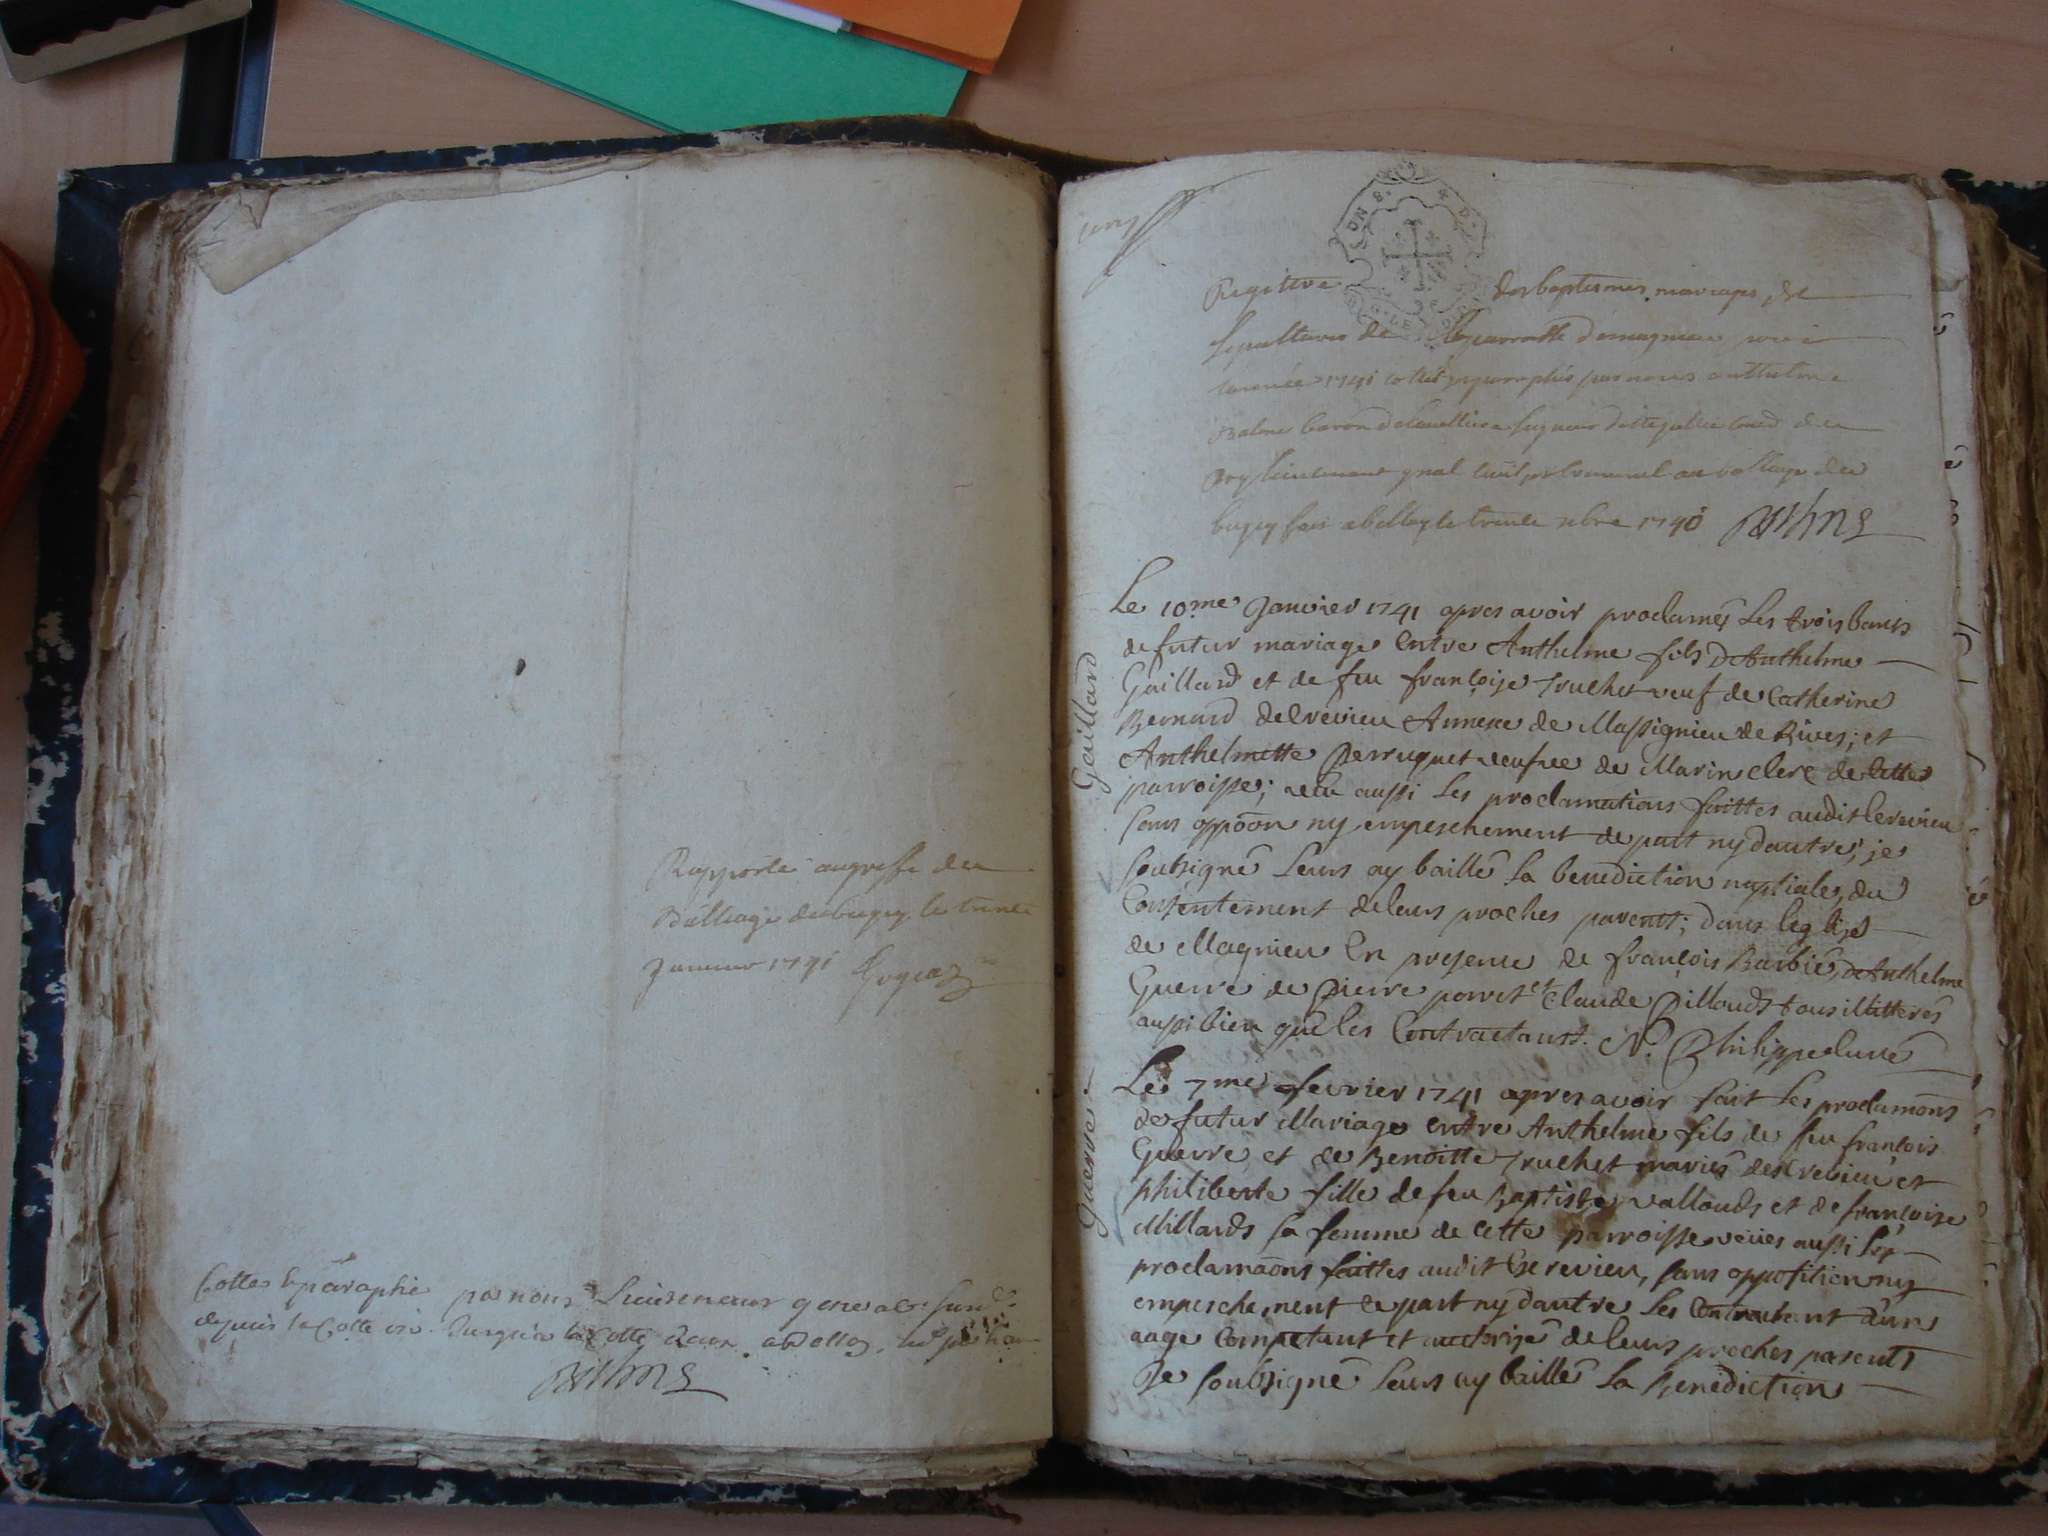 Rapporté au greffe du
Balliage du bugey le trente
Janvier 1741
Cotté et paraphé par nous Lieutenant general
depuis la Cotte jusqu'a la Cotte
Balme
DUN S. D.
Registre des baptemes mariages et
sepultures de la parroisse de magnieu pour
lannée 1741 cotté et paraphés par nous anthelme
Balme baron de seigneur
Roy lieutenant gnal civil et criminel au balliage du
bugey fait a belley le trente xbre 1740 Balme
Gaillard
Le 10.me Janvier 1741 apres avoir proclamés Les trois bancs
de futur mariage Entre Anthelme fils D'Anthelme
Gaillard et de feu françoise Truchet veuf de Catherine
Bernard de Crevieu Annexe de Massignieu de Rives; et
Anthelmette Perruquet veufve de Marin Clerc de Cette
parroisse; veu aussi Les proclamations faittes audit Crevieu
sans oppôon ny empeschement de part ny dautre; je
soubsigné Leurs ay baillé La benediction nuptiale, du
Consentement de leurs proches parents; dans leglise
de Magnieu En presence de françois Barbié, d'Anthelme
Guerre de Pierre porret et Claude Pillouds tous illitterés
aussi bien que les Contractants. N. Philippe curé
Guerre
Le 7.me fevrier 1741 apres avoir fait Les proclamôns
de futur Mariage entre Anthelme fils de feu françois
Guerre et de Benoitte Truchet mariés de Crevieu et
philiberte fille de feu Baptiste vallouds et de françoise
Millards sa femme de Cette parroisse veües aussi Les
proclamaôns faittes audit Crevieu, sans opposition ny
empeschement de part ny dautre Les Contractant d'un
aage Competant et auctorisé de leurs proches parents
Je soubsigné Leurs ay baillé La Benediction